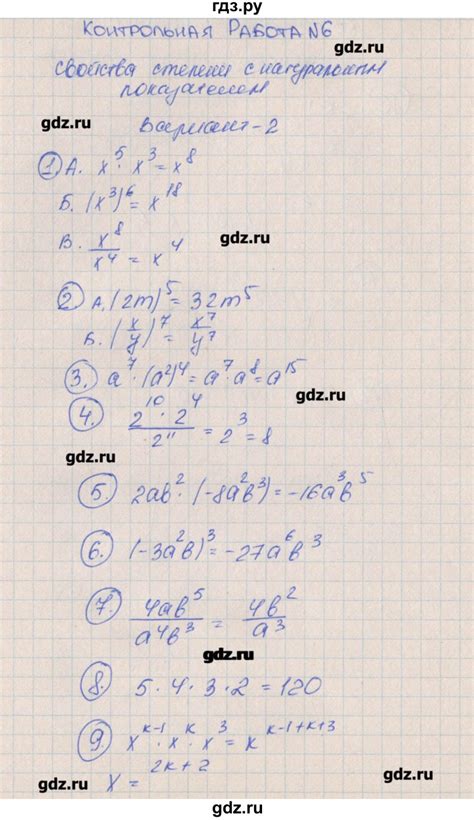 гдз.ру
КОНТРОЛЬНАЯ РАБОТА №6
gdz.ru
свойства степени с натуральным
показателем
gdz.ru
Вариант-2
1 А. x⁵ · x³ = x⁸
gdz.ru
Б. (x³)⁶ = x¹⁸
В. x⁸/x⁴ = x⁴
gdz.ru
2 А. (2m)⁵ = 32m⁵
Б. (x/y)⁷ = x⁷/y⁷
gdz.ru
3. a⁷ · (a²)⁴ = a⁷ · a⁸ = a¹⁵
gdz.ru
4. 2¹⁰ · 2⁴ / 2¹¹ = 2³ = 8
gdz.ru
5. 2ab² · (-8a²b³) = -16a³b⁵
gdz.ru
6. (-3a²b)³ = -27a⁶b³
gdz.ru
7. 4ab⁵/a⁴b³ = 4b²/a³
gdz.ru
8. 5 · 4 · 3 · 2 = 120
gdz.ru
9. x^(k-1) · x^k · x³ = x^(k-1+k+3)
x = ^(2k+2)
gdz.ru
gdz.ru
гдз.ру